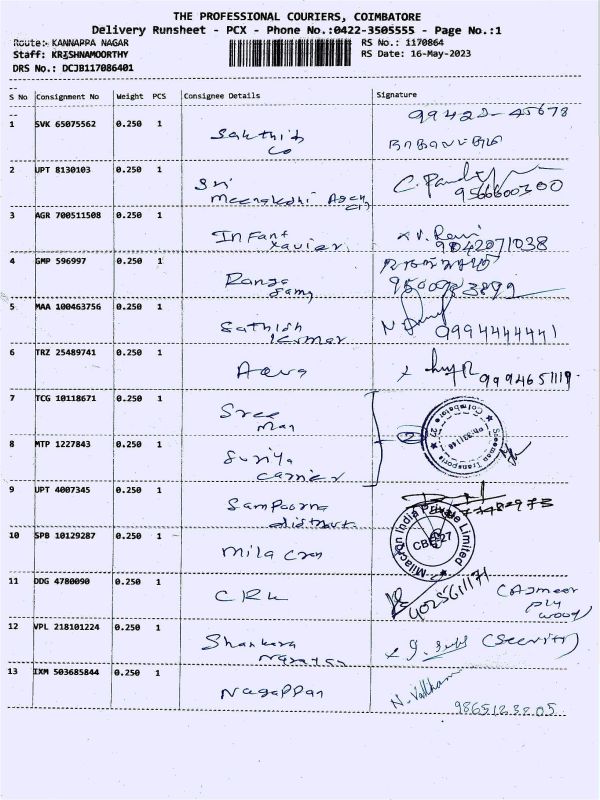 THE PROFESSIONAL COURIERS, COIMBATORE
Delivery Runsheet - PCX - Phone No.:0422-3505555 - Page No.:1
Route:- KANNAPPA NAGAR
RS No.: 1170864
Staff: KRISHNAMOORTHY
RS Date: 16-May-2023
DRS No.: DCJB117086401
S No Consignment No Weight PCS Consignee Details Signature
1 SVK 65075562 0.250 1 Sakthi Co 99422-45678
2 UPT 8130103 0.250 1 Sri Meenakshi C. Pandi 9566600300
3 AGR 700511508 0.250 1 Infant Xavier x V. Ravi 9042071038
4 GMP 596997 0.250 1 Ranga Samy
5 MAA 100463756 0.250 1 Sathish Kumar 9994444441
6 TRZ 25489741 0.250 1 9994651119
7 TCG 10118671 0.250 1 Sree Mar
8 MTP 1227843 0.250 1 Suriya Carrier
Coimbatore
9 UPT 4007345 0.250 1 Sampoorna
10 SPB 10129287 0.250 1 Mila Cron
Milacron India Private Limited
CBE-27
11 DDG 4780090 0.250 1 (Ajmeer
Ply
Wood)
12 VPL 218101224 0.250 1 Shankara Narayan (Security)
13 IXM 503685844 0.250 1 Nagappan